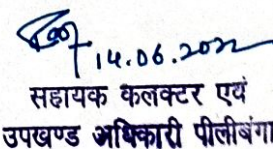 14.06.2022
सहायक कलक्टर एवं
उपखण्ड अधिकारी पीलीबंगा